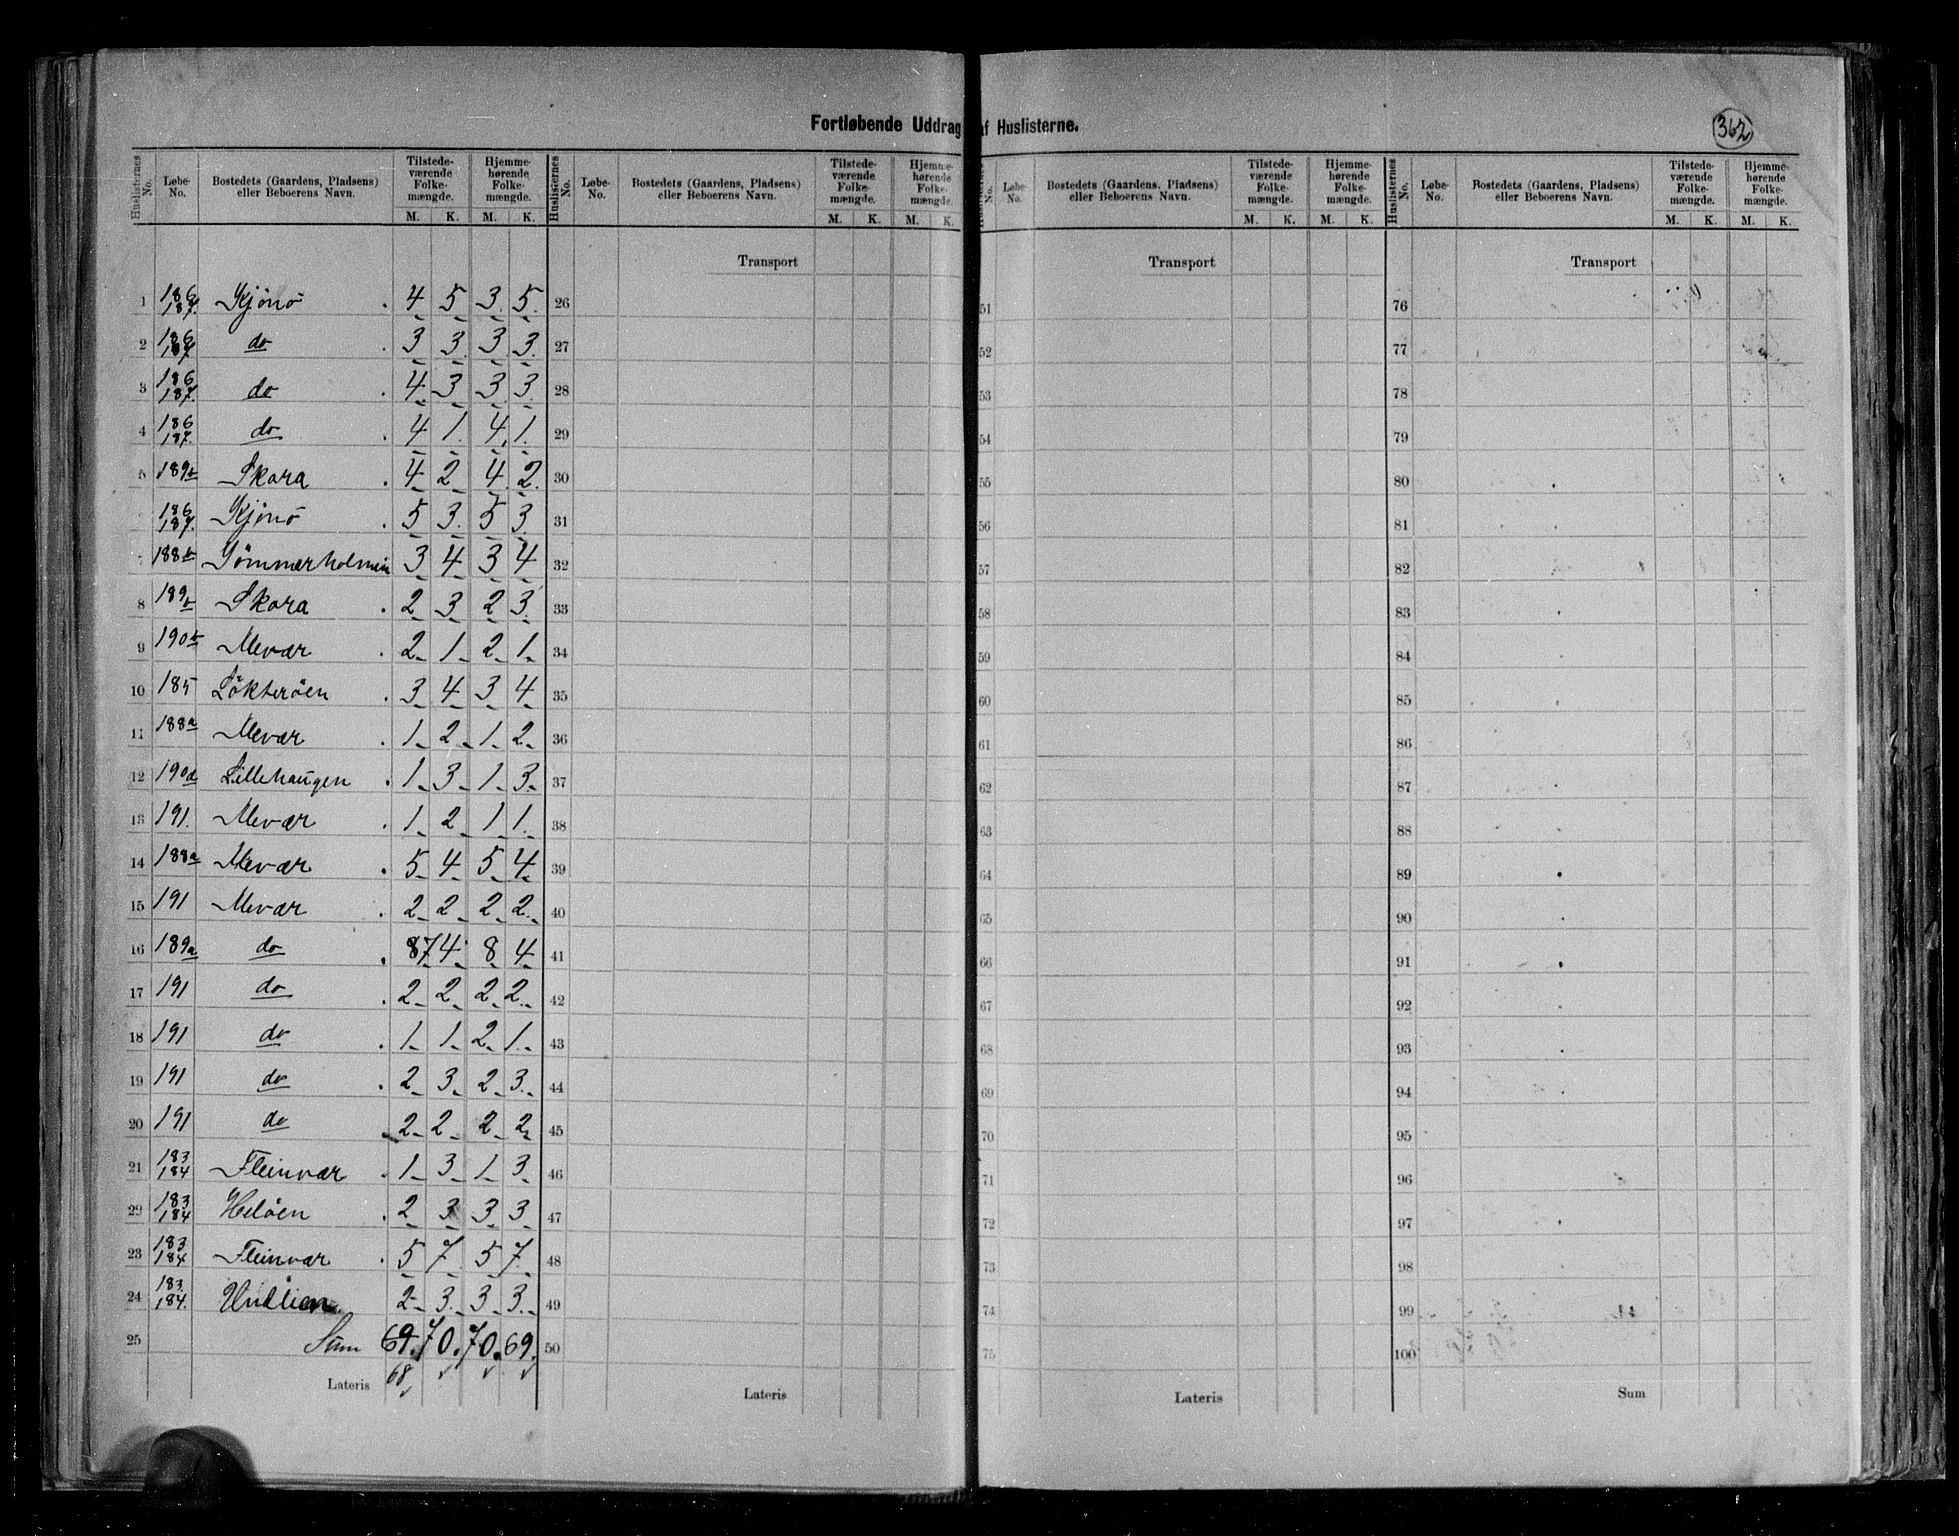 Fortløbende Uddrag af Huslisterne.
362
Huslisternes No. Løbe-No. Bostedets (Gaardens, Pladsens) eller Beboerens Navn. Tilstedeværende Folkemængde. M. K. Hjemmehørende Folkemængde. M. K.
Huslisternes No. Løbe-No. Bostedets (Gaardens, Pladsens) eller Beboerens Navn. Tilstedeværende Folkemængde. M. K. Hjemmehørende Folkemængde. M. K.
No. Løbe-No. Bostedets (Gaardens, Pladsens) eller Beboerens Navn. Tilstedeværende Folkemængde. M. K. Hjemmehørende Folkemængde. M. K.
Huslisternes No. Løbe-No. Bostedets (Gaardens, Pladsens) eller Beboerens Navn. Tilstedeværende Folkemængde. M. K. Hjemmehørende Folkemængde. M. K.
Transport Transport Transport
1 186 187. Kjönö 4 5 3 5 26 51 76
2 186 187 do 3 3 3 3 27 52 77
3 186 187. do 4 3 3 3 28 53 78
4 186 187. do 4 1 4 1 29 54 79
5 189b Skora 4 2 4 2 30 55 80
186 187. Kjönö 5 3 5 3 31 56 81
188b Tömmerholmen 3 4 3 4 32 57 82
8 189b Skora 2 3 2 3 33 58 83
9 190b Mevær 2 1 2 1 34 59 84
10 185 Lökteröen 3 4 3 4 35 60 85
11 188a Mevær 1 2 1 2 36 61 86
12 190d Lillehaugen 1 3 1 3 37 62 87
13 191. Mevær 1 2 1 1 38 63 88
14 188a Mevær 5 4 5 4 39 64 89
15 191 Mevær 2 2 2 2 40 65 90
16 189a do 87 4 8 4 41 66 91
17 191 do 2 2 2 2 42 67 92
18 191 do 1 1 2 1 43 68 93
19 191 do 2 3 2 3 44 69 94
20 191 do 2 2 2 2 45 70 95
21 183 184 Fleinvær 1 3 1 3 46 71 96
22 183 184 Helöen 2 3 3 3 47 72 97
23 183 184 Fleinvær 5 7 5 7 48 73 98
24 183 184. 2 3 3 3 49 74 99
25 Sum 69. 70. 70. 69. 50 75 100
68
Lateris Lateris Lateris Sum